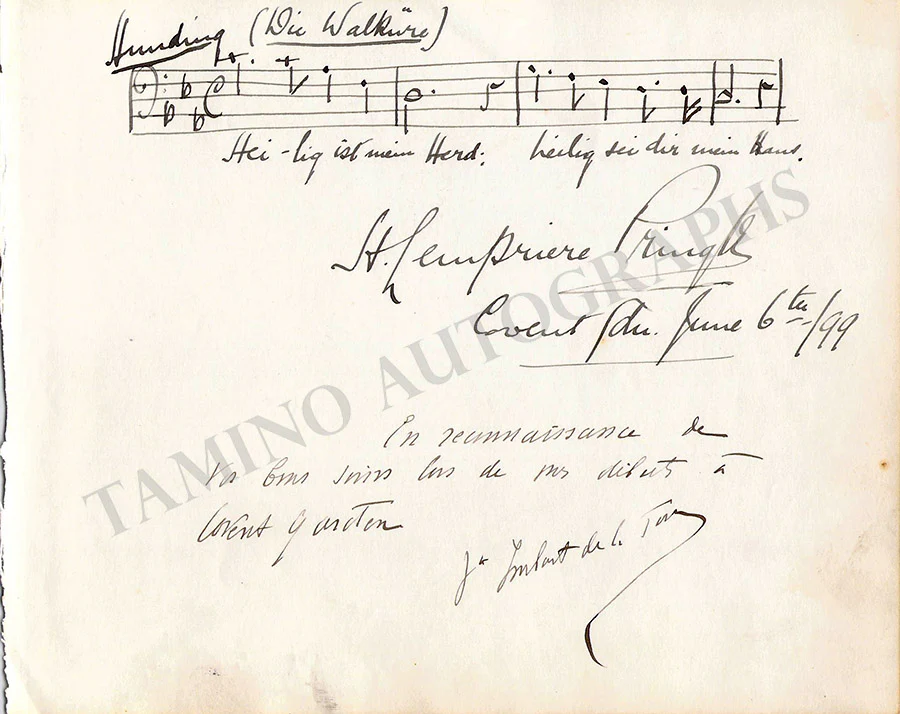 Hunding (Die Walküre)
Hei-lig ist mein Herd; heilig sei dir mein Haus.
H. Lempriere Pringle
Covent Gdn. June 6th/99
TAMINO AUTOGRAPHS
En reconnaissance de
vos bons soins lors de mes débuts à
Covent Garden
Gn Imbart de la Tour